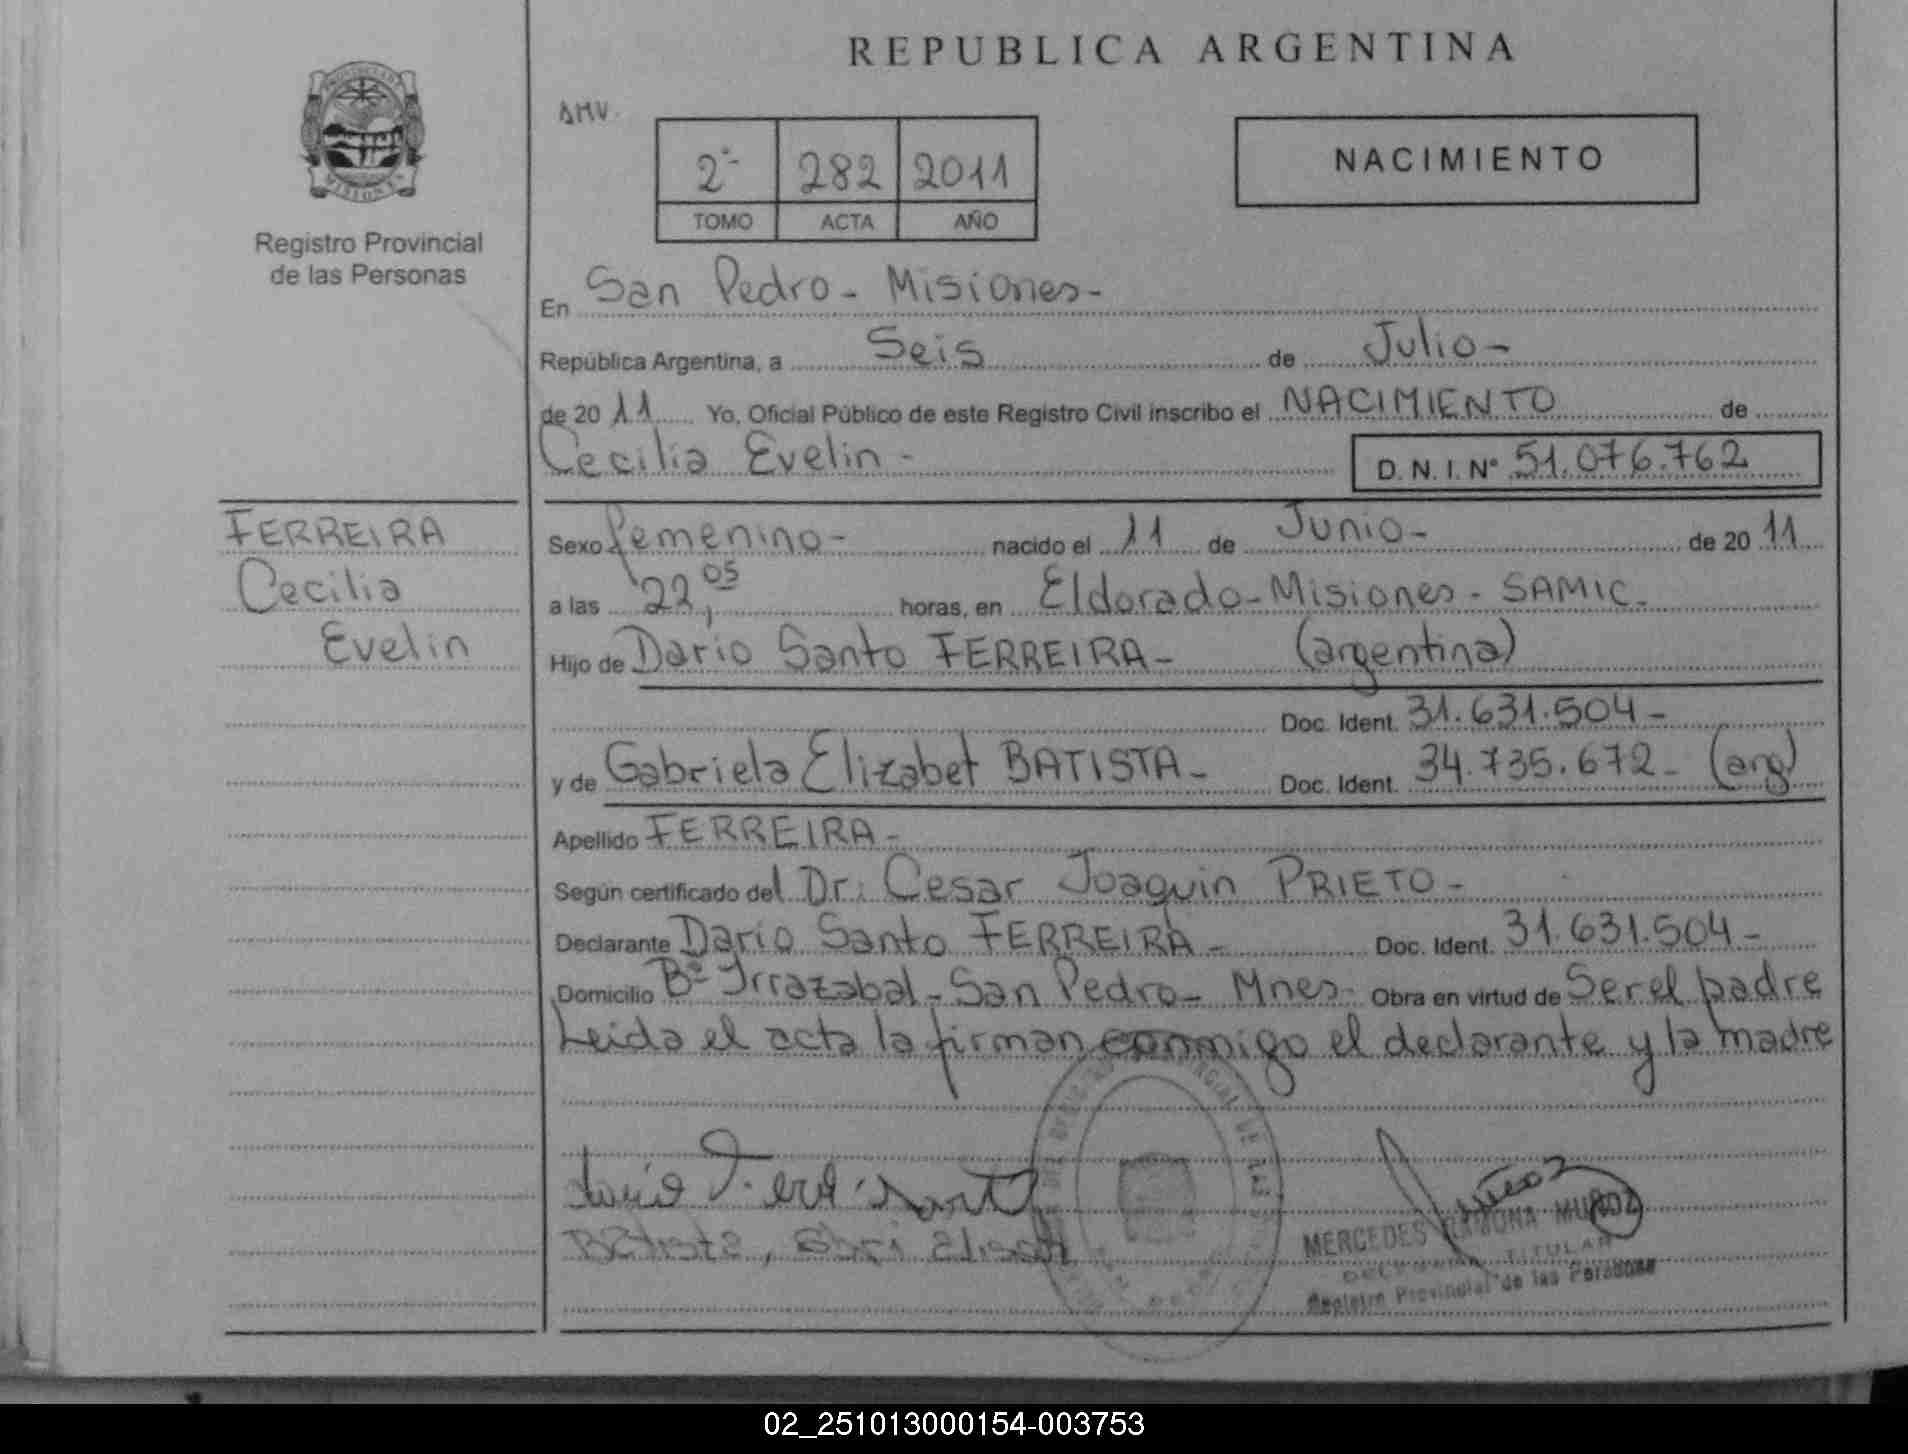 REPUBLICA ARGENTINA
PROVINCIA DE MISIONES
Registro Provincial
de las Personas
SMV.
2º- 282 2011
TOMO ACTA AÑO
NACIMIENTO
En San Pedro - Misiones -
República Argentina, a Seis de Julio -
de 20 11 Yo, Oficial Público de este Registro Civil inscribo el NACIMIENTO de
Cecilia Evelin - D. N. I. Nº 51.076.762
FERREIRA
Cecilia
Evelin
Sexo femenino - nacido el 11 de Junio - de 20 11
a las 22,05 horas, en Eldorado - Misiones - SAMIC -
Hijo de Dario Santo FERREIRA - (argentina)
Doc. Ident. 31.631.504 -
y de Gabriela Elizabet BATISTA - Doc. Ident. 34.735.672 - (arg)
Apellido FERREIRA -
Según certificado del Dr: Cesar Joaquin PRIETO -
Declarante Dario Santo FERREIRA - Doc. Ident. 31.631.504 -
Domicilio Bº Irrazabal - San Pedro - Mnes - Obra en virtud de Ser el padre
Leida el acta la firman conmigo el declarante y la madre
MERCEDES RAMONA MUÑOZ
DELEGADA TITULAR
Registro Provincial de las Personas
02_251013000154-003753